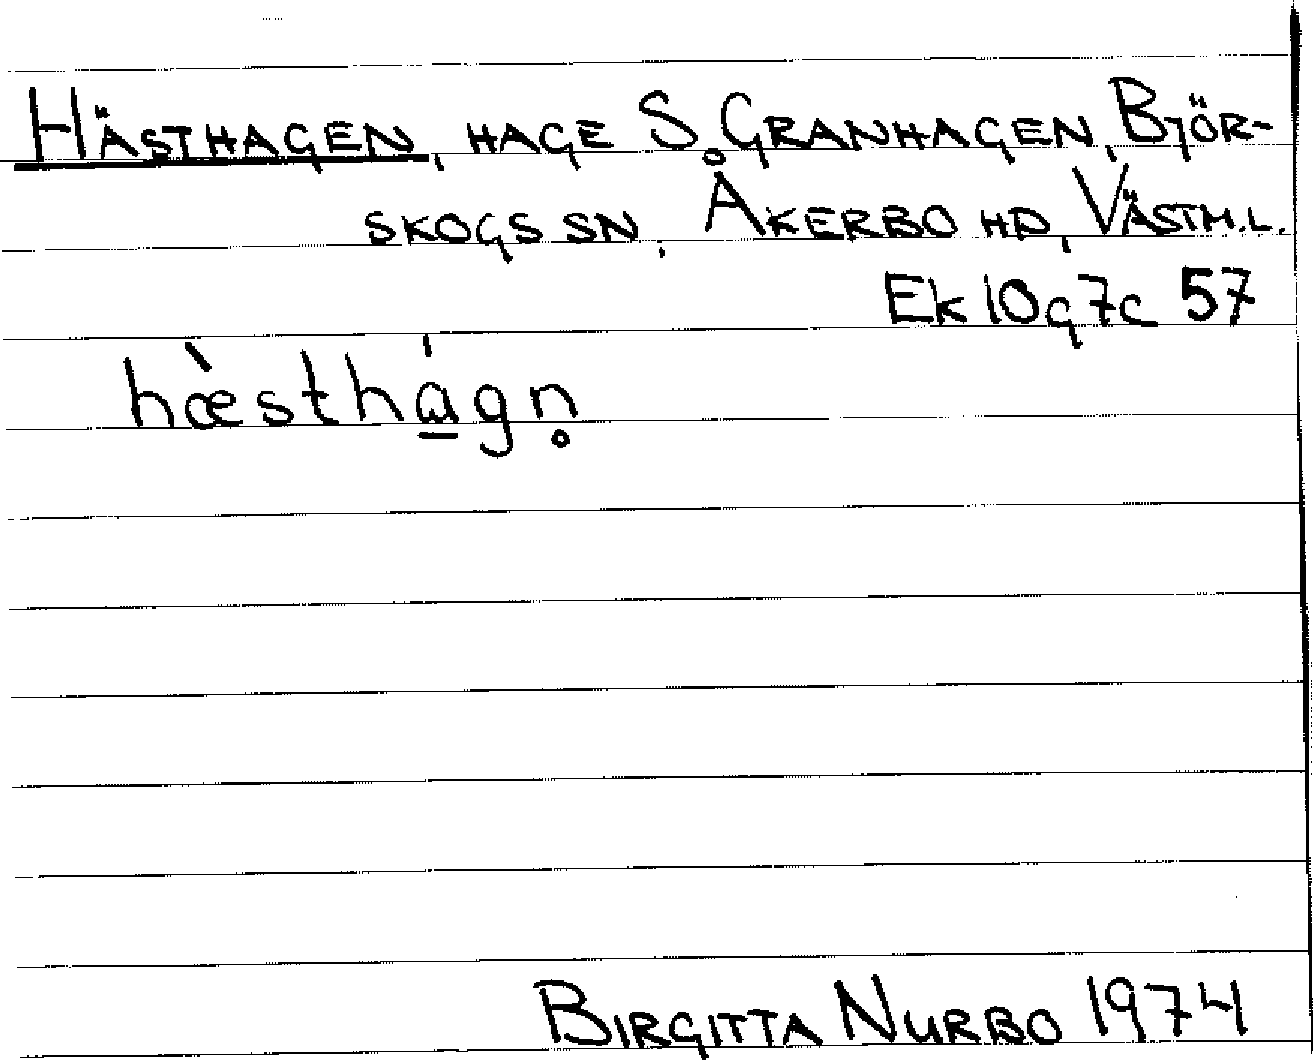 HÄSTHAGEN, HAGE S. GRANHAGEN, BJÖR-
SKOGS SN, ÅKERBO HD, VÄSTM.L.
Ek 10g7c 57
hæ̀sthá̱gn̥
BIRGITTA NURBO 1974